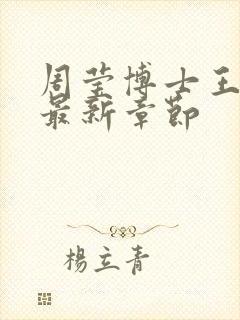 周莹博士王
最新章节
楊立青